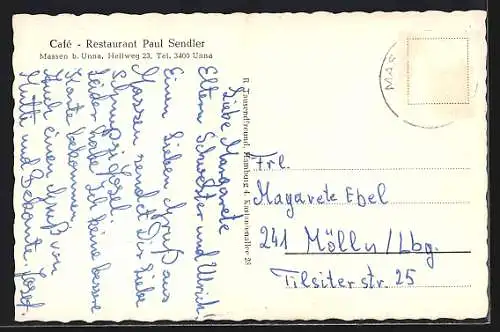 Café - Restaurant Paul Sendler
Massen b. Unna, Hellweg 23, Tel. 3400 Unna
Liebe Margarete
Eltern Schwester und Ulrich!
Einen lieben Gruß aus
Massen sendet Dir Liebe
Josef
Leider habe Ich keine bessere
Karte bekommen
Auch einen Gruß von
Mutti und Bekannte. Josef.
R. Tausendfreund, Hamburg 4, Kastanienallee 26
MAS
Frl.
Magarete Ebel
241 Mölln/Lbg.
Tilsiter str. 25